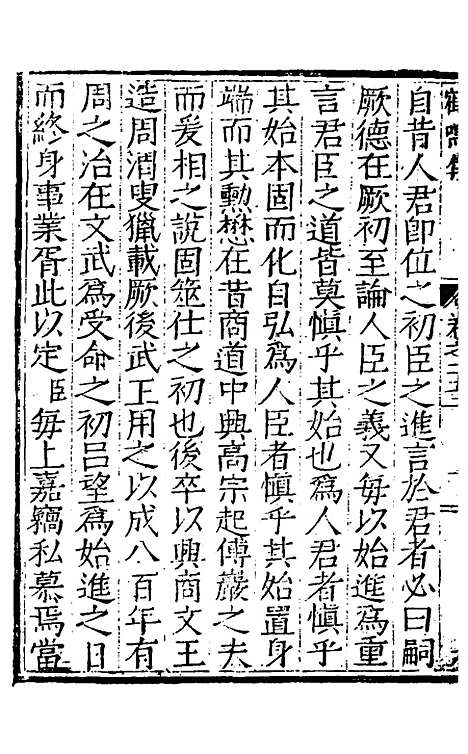 自昔人君卽位之初臣之進言於君者必曰嗣
厥德在厥初至論人臣之義又每以始進爲重
言君臣之道皆莫愼乎其始也爲人君者愼乎
其始本固而化自弘爲人臣者愼乎其始置身
端而其勲懋在昔商道中興高宗起傅巖之夫
而爰相之說固筮仕之初也後卒以興商文王
造周渭叟獵載厥後武王用之以成八百年有
周之治在文武爲受命之初呂望爲始進之日
而終身事業胥此以定臣每上嘉竊私慕焉當